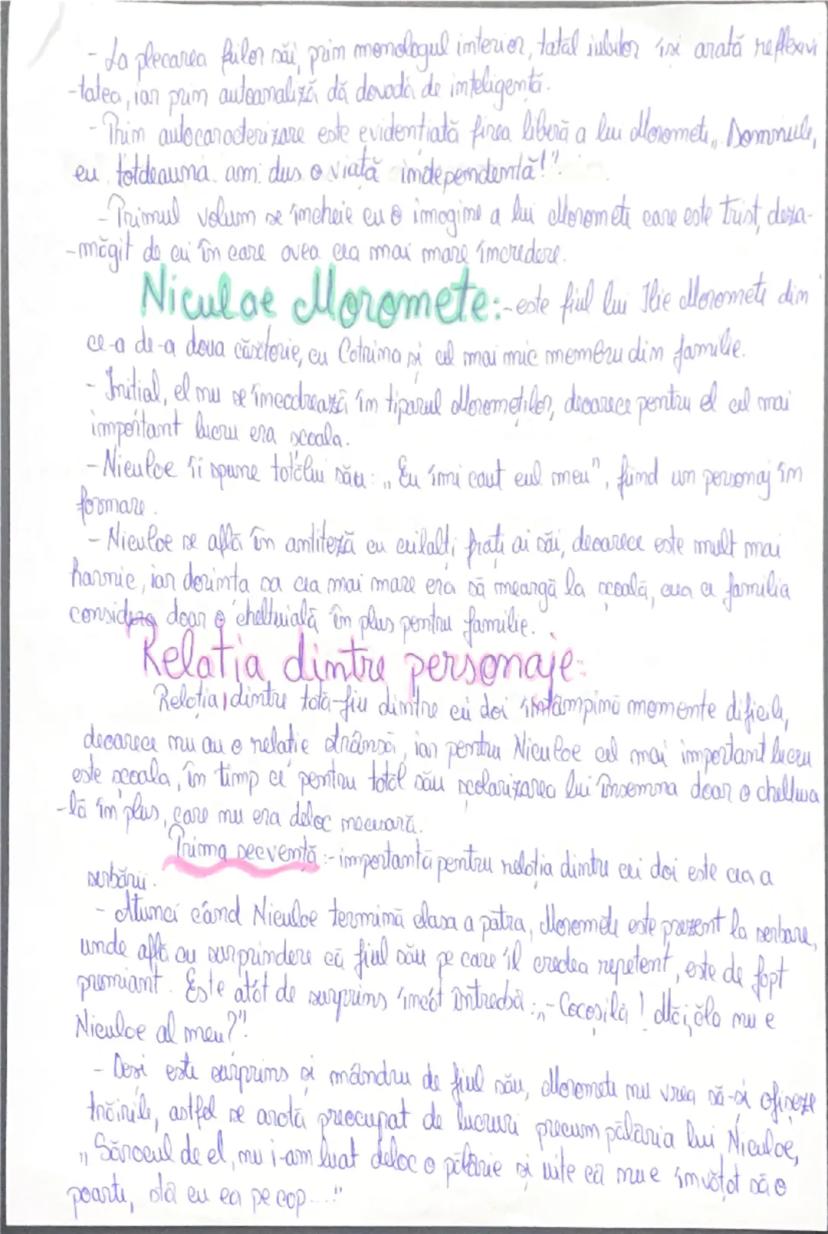 - La plecarea fiilor săi, prim monologul interior, tatăl iubitor își arată reflexivi
-tatea, iar prim autoanaliză dă dovadă de inteligență.
- Prim autocaracterizare este evidențiată firea liberă a lui Moromete „Domnule,
eu totdeauna am dus o viață independentă!"
- Primul volum se încheie cu o imagine a lui Moromete care este trist, deza-
-măgit de cei în care avea cea mai mare încredere.
Niculae Moromete: - este fiul lui Ilie Moromete din
ce-a de-a doua căsătorie, cu Catrina și cel mai mic membru din familie.
- Inițial, el nu se încadrează în tiparul Moromeților, deoarece pentru el cel mai
important lucru era școala.
- Niculae îi spune tatălui său: „Eu îmi caut eul meu", fiind un personaj în
formare.
- Niculae se află în antiteză cu ceilalți frați ai săi, deoarece este mult mai
harnic, iar dorința sa cea mai mare era să meargă la școală, ceea ce familia
considera doar o cheltuială în plus pentru familie.
Relația dintre personaje:
Relația dintre tată-fiu dintre cei doi întâmpină momente dificile,
deoarece nu au o relație strânsă, iar pentru Niculae cel mai important lucru
este școala, în timp ce pentru tatăl său școlarizarea lui însemna doar o cheltuia
-lă în plus, care nu era deloc necesară.
Prima secvență: - importantă pentru relația dintre cei doi este cea a
serbării.
- Atunci când Niculae termină clasa a patra, Moromete este prezent la serbare,
unde află cu surprindere că fiul său pe care îl credea repetent, este de fapt
premiant. Este atât de surprins încât întreabă: „- Cocoșilă! Mă, ăla nu e
Niculae al meu?".
- Deși este surprins și mândru de fiul său, Moromete nu vrea să-și afișeze
trăirile, astfel se arată preocupat de lucruri precum pălăria lui Niculae,
„Săracul de el, nu i-am luat deloc o pălărie și uite că nu e învățat să o
poarte, stă cu ea pe cap ...."